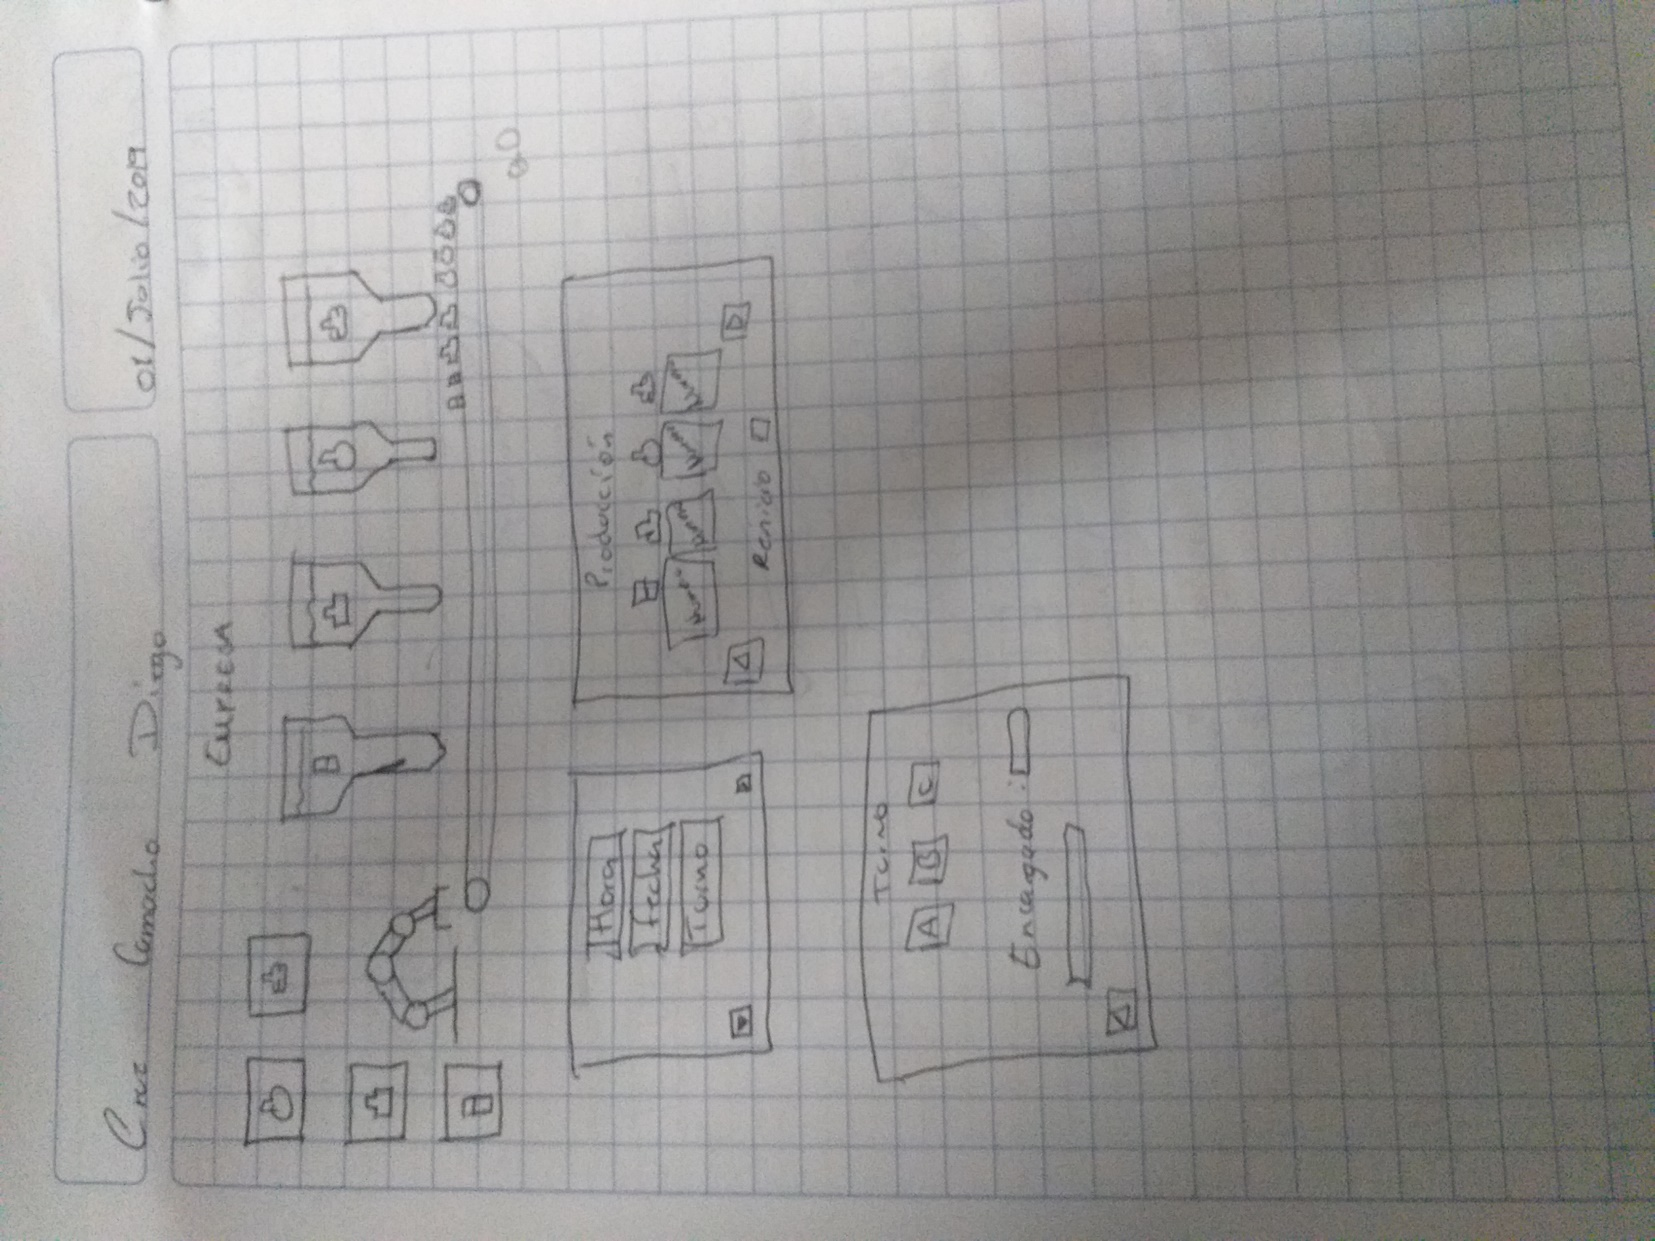 Cruz Camacho Diego
01/Julio/2019
Hora
Fecha
Turno
Producción
Reinicio
Turno
A B C
Encargado: